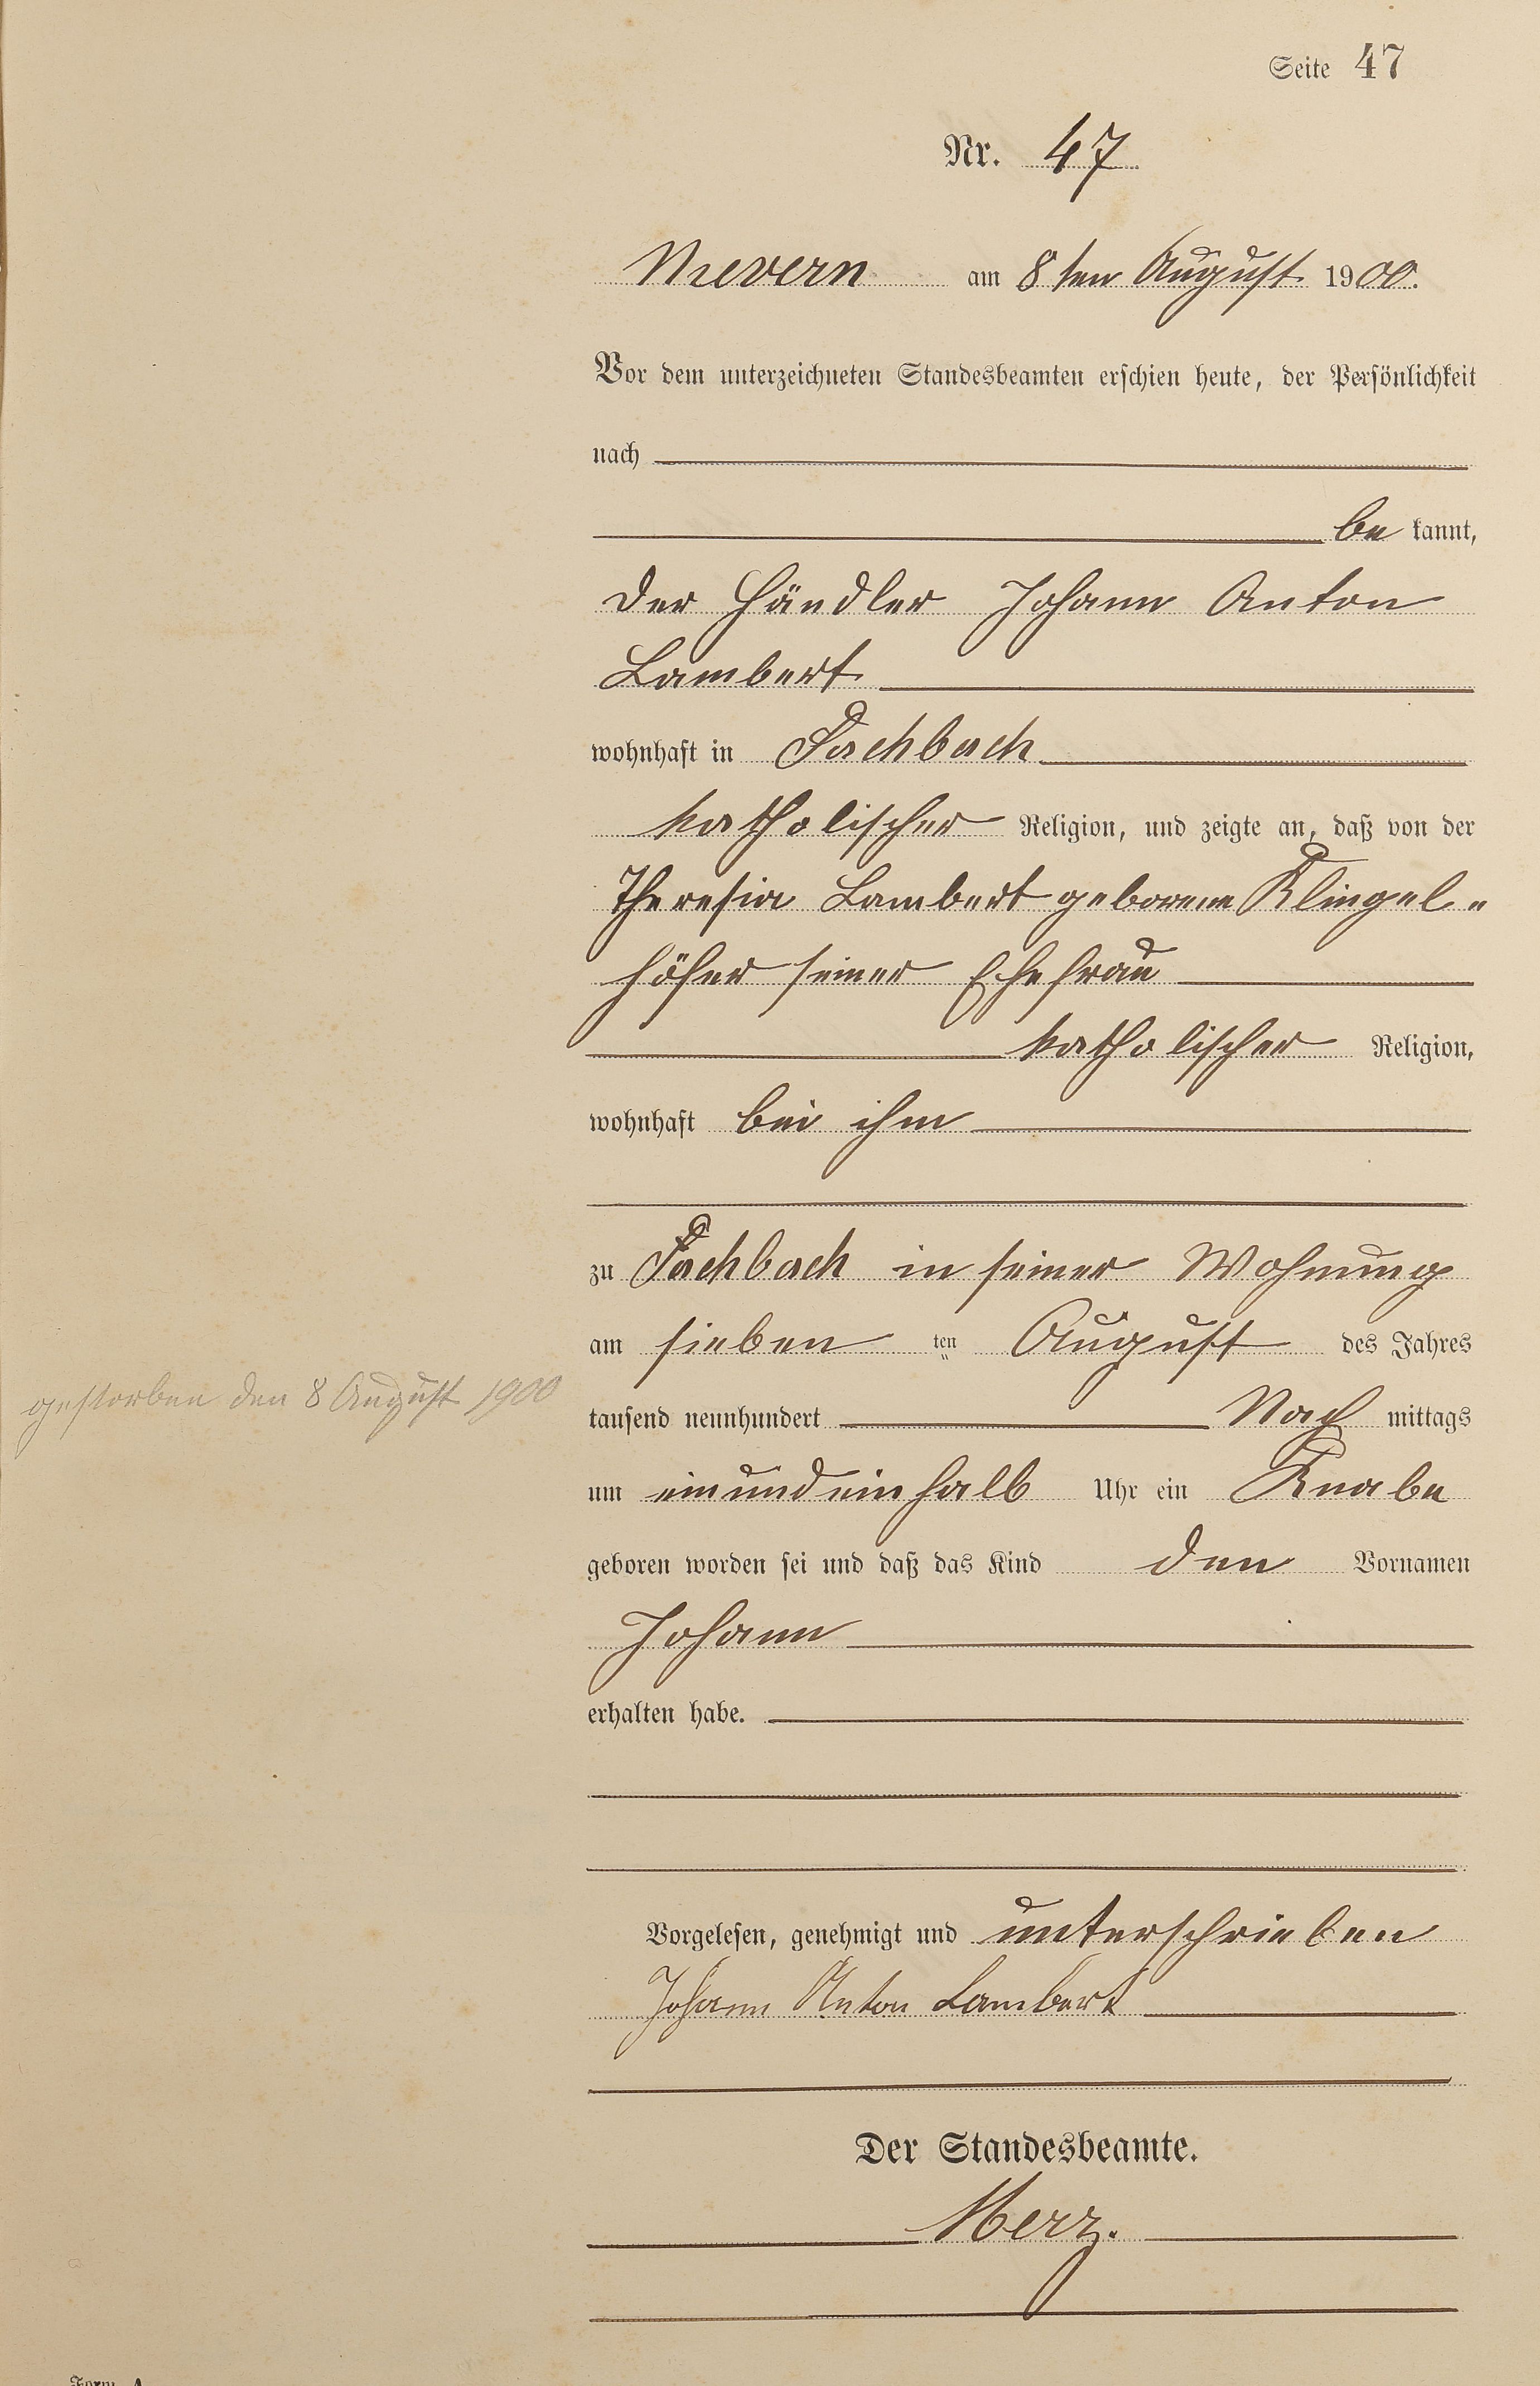 Seite 47
Nr. 47
Nievern am 8ten August 1900.
Vor dem unterzeichneten Standesbeamten erschien heute, der Persönlichkeit
nach
be kannt,
der Händler Johann Anton
Lambert
wohnhaft in Fachbach
katholischer Religion, und zeigte an, daß von der
Theresia Lambert geborene Klingel-
höfer seiner Ehefrau
katholischer Religion,
wohnhaft bei ihm
zu Fachbach in seiner Wohnung
am sieben ten August des Jahres
gestorben den 8 August 1900
tausend neunhundert Nach mittags
um einundeinhalb Uhr ein Knabe
geboren worden sei und daß das Kind den Vornamen
Johann
erhalten habe.
Vorgelesen, genehmigt und unterschrieben
Johann Anton Lambert
Der Standesbeamte.
Merz.
Form. A